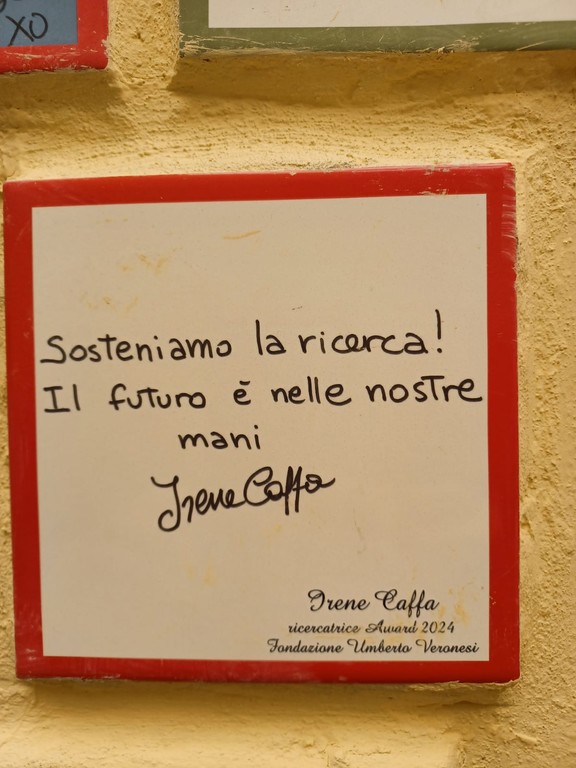 XO
Sosteniamo la ricerca!
Il futuro è nelle nostre
mani
Irene Caffa
Irene Caffa
ricercatrice Award 2024
Fondazione Umberto Veronesi